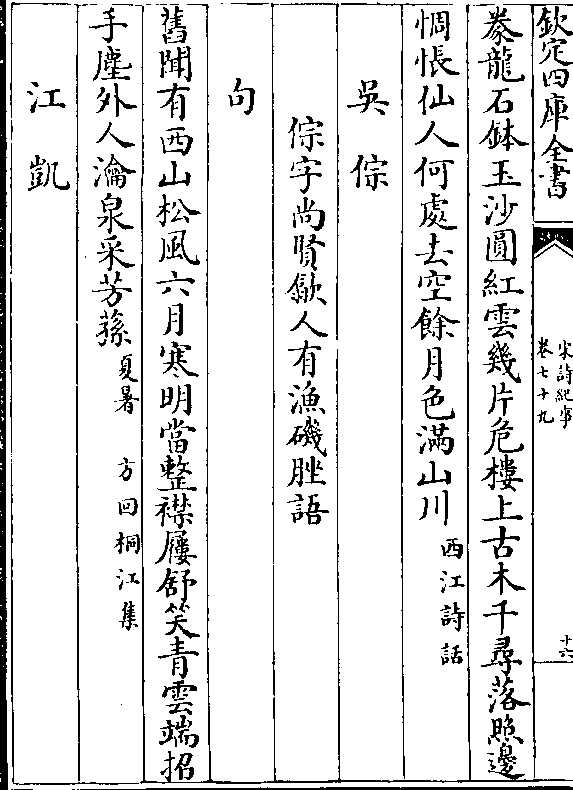 欽定四庫全書
宋詩紀事
卷七十九
十六
豢龍石鉢玉沙圓紅雲幾片危樓上古木千尋落照邊
惆悵仙人何處去空餘月色滿山川西江詩話
吳倧
倧字尚賢歙人有漁磯脞語
句
舊聞有西山松風六月寒明當整襟屨舒笑青雲端招
手塵外人瀹泉采芳蓀夏暑 方回桐江集
江凱